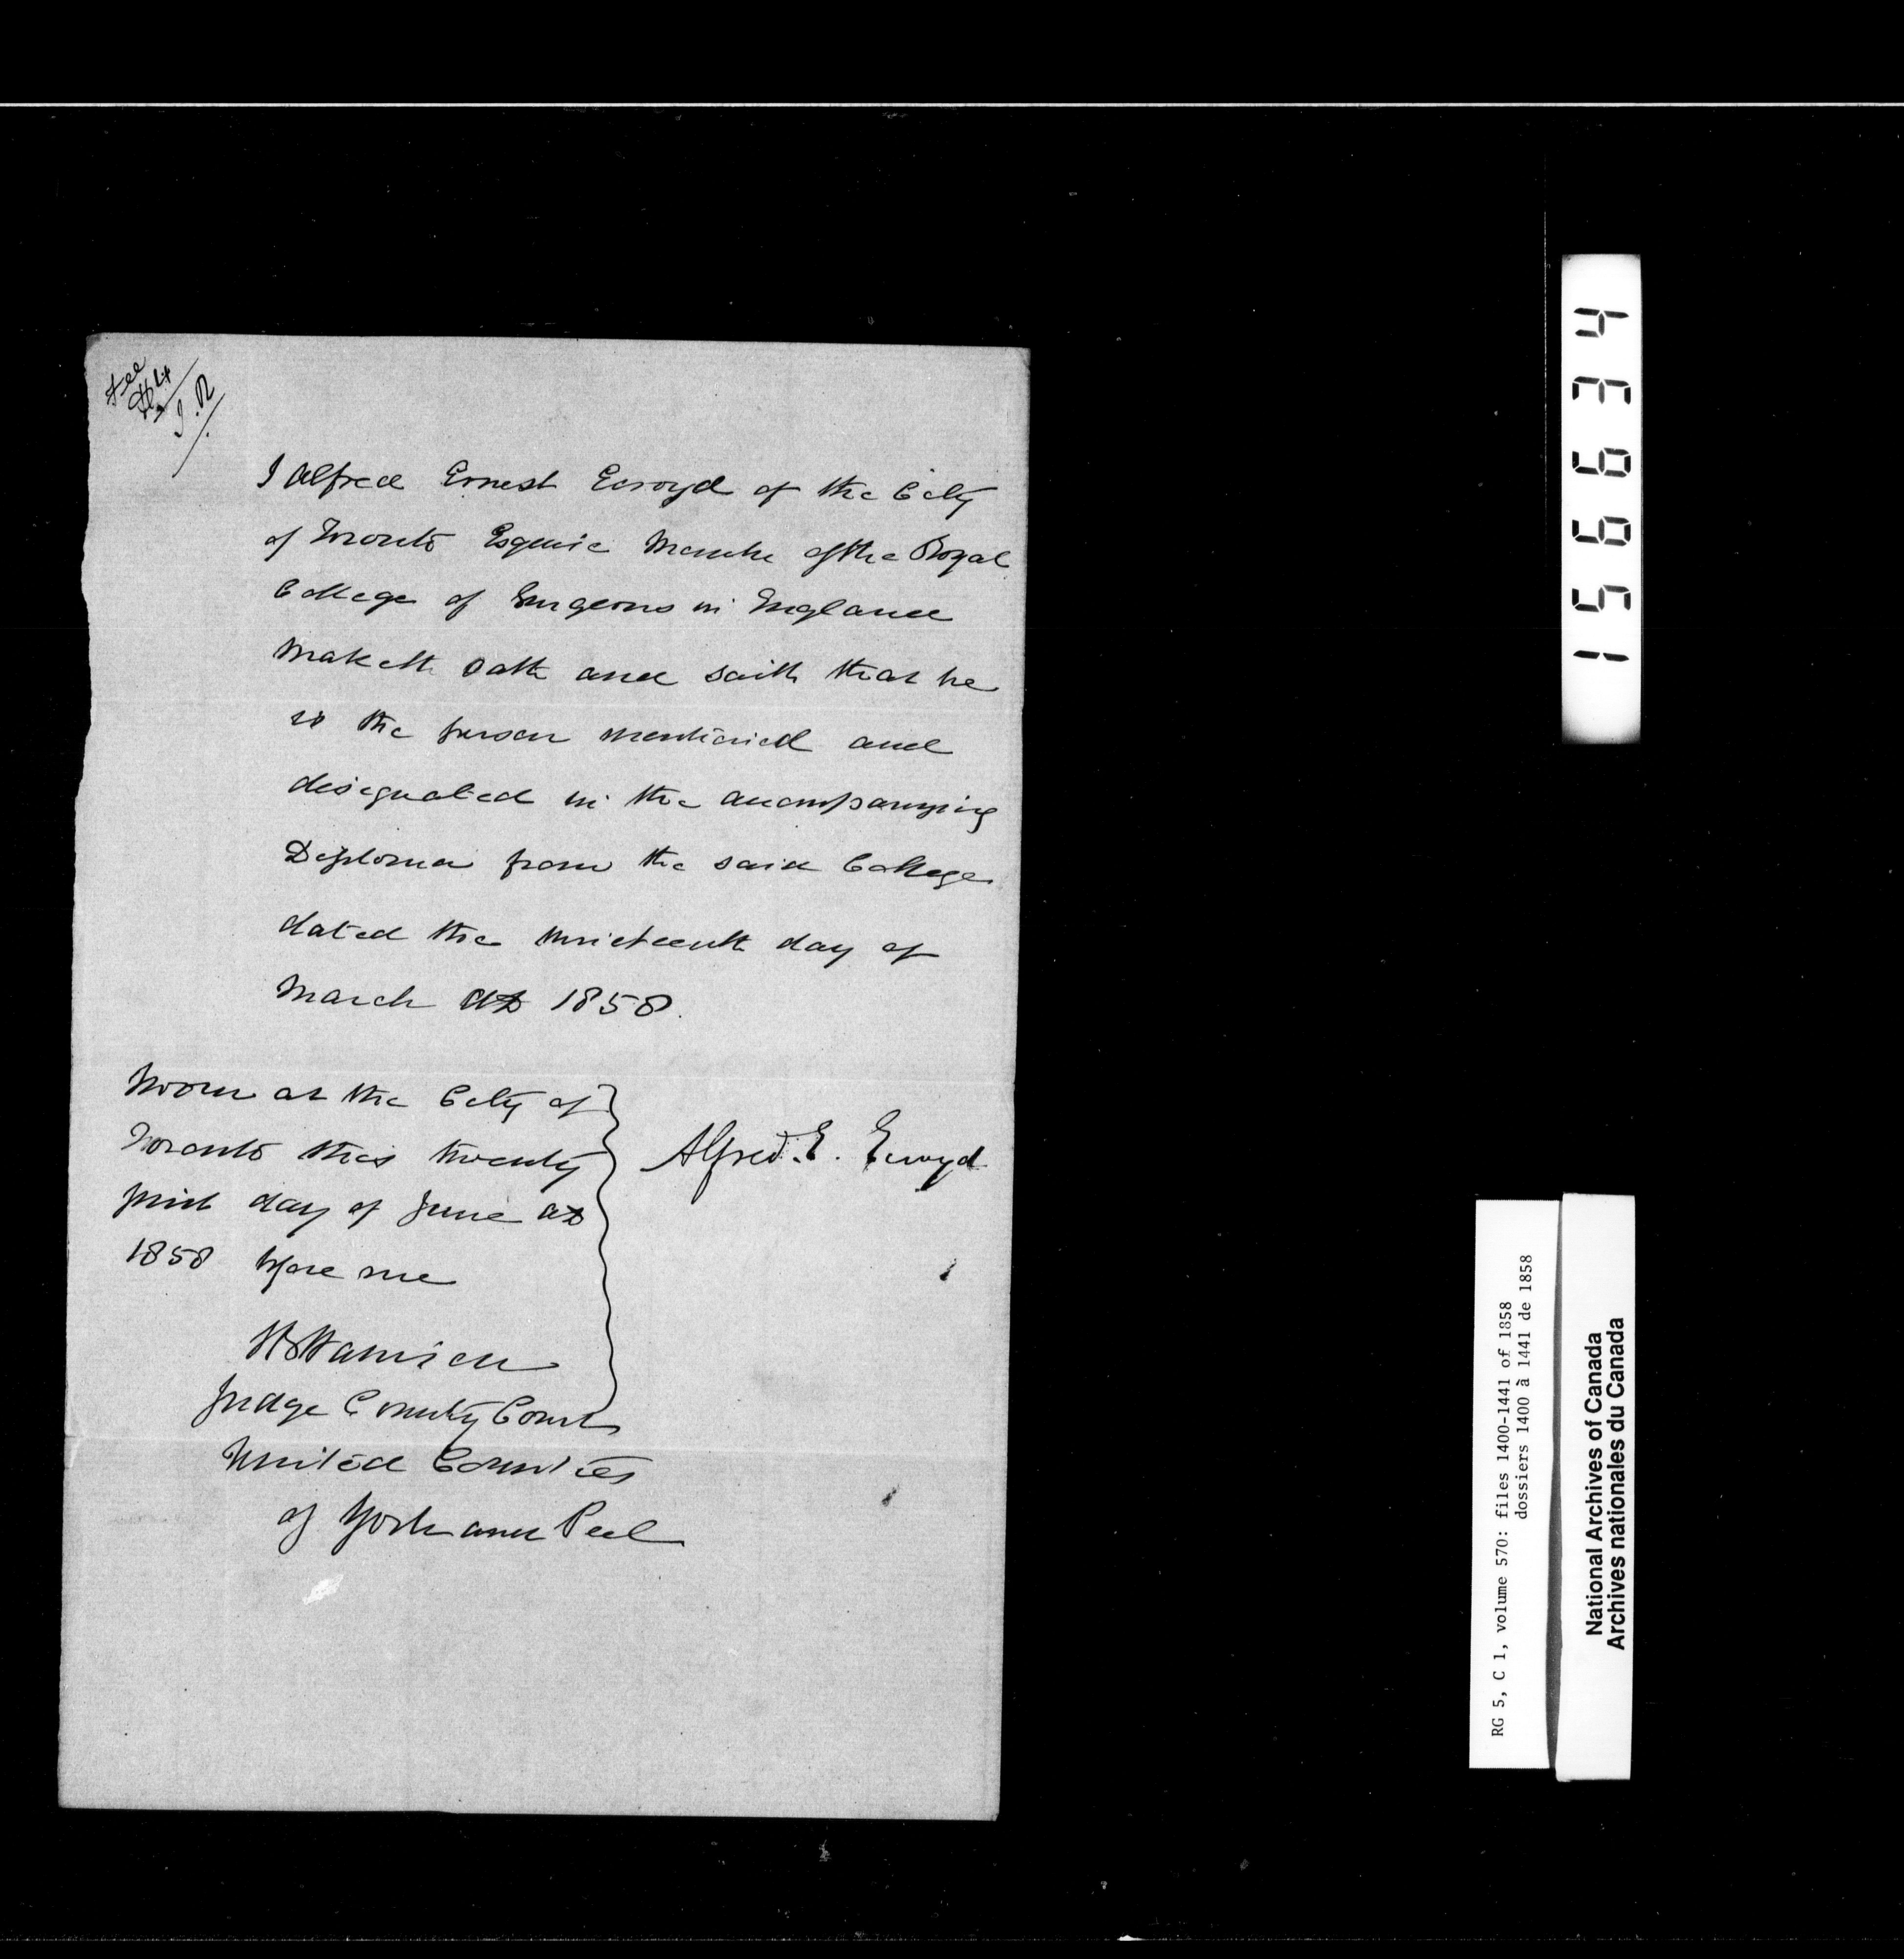 Fee
$4
I Alfred Ernest Ecroyd of the City
of Toronto Esquire Member of the Royal
College of Surgeons in England
maketh oath and saith that he
is the person mentioned and
designated in the accompanying
Diploma from the said College
dated the nineteenth day of
March AD 1858.
Sworn at the City of
Toronto this twenty
first day of June AD
1858 before me
Alfred. E. Ecroyd
SB Harrison
Judge County Court
United Counties
of York and Peel
156634
RG 5, C 1, volume 570: files 1400-1441 of 1858
dossiers 1400 à 1441 de 1858
National Archives of Canada
Archives nationales du Canada